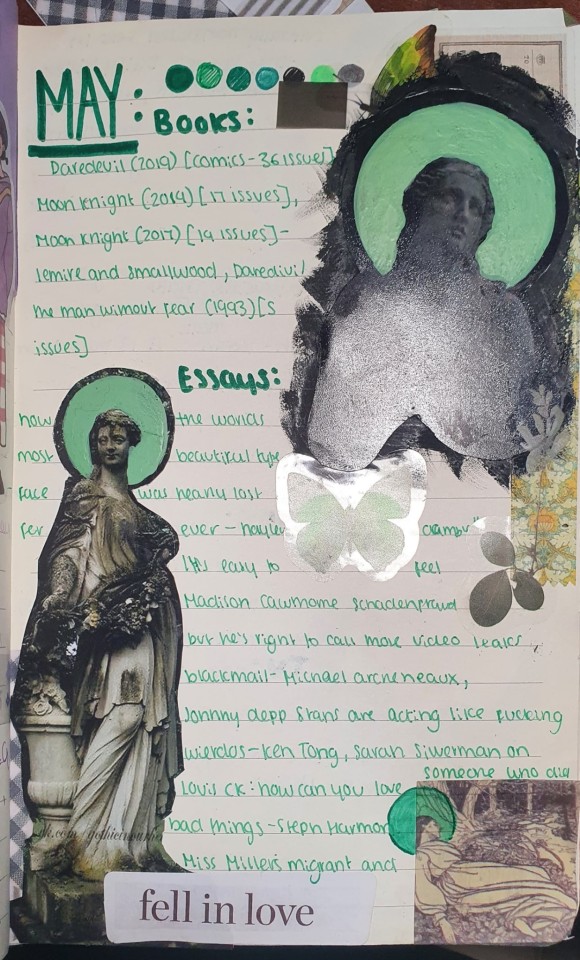 MAY:
Books:
Daredevil (2019) [comics - 36 issue]
Moon Knight (2014) [17 issues],
Moon Knight (2017) [14 issues] -
lemire and smallwood, Daredivil
the man without fear (1993) [5
issues]
Essays:
how the worlds
most beautiful type
face was nearly lost
for ever -
It's easy to feel
Madison Cawthorne Schadenfraud
but he's right to call more video leaks
blackmail - Michael arceneaux,
Johnny depp Stans are acting like fucking
wierdos - Ken Tong, Sarah Silverman on
Louis CK: how can you love someone who did
bad things - Steph Harmon
Miss Millers migrant and
fell in love